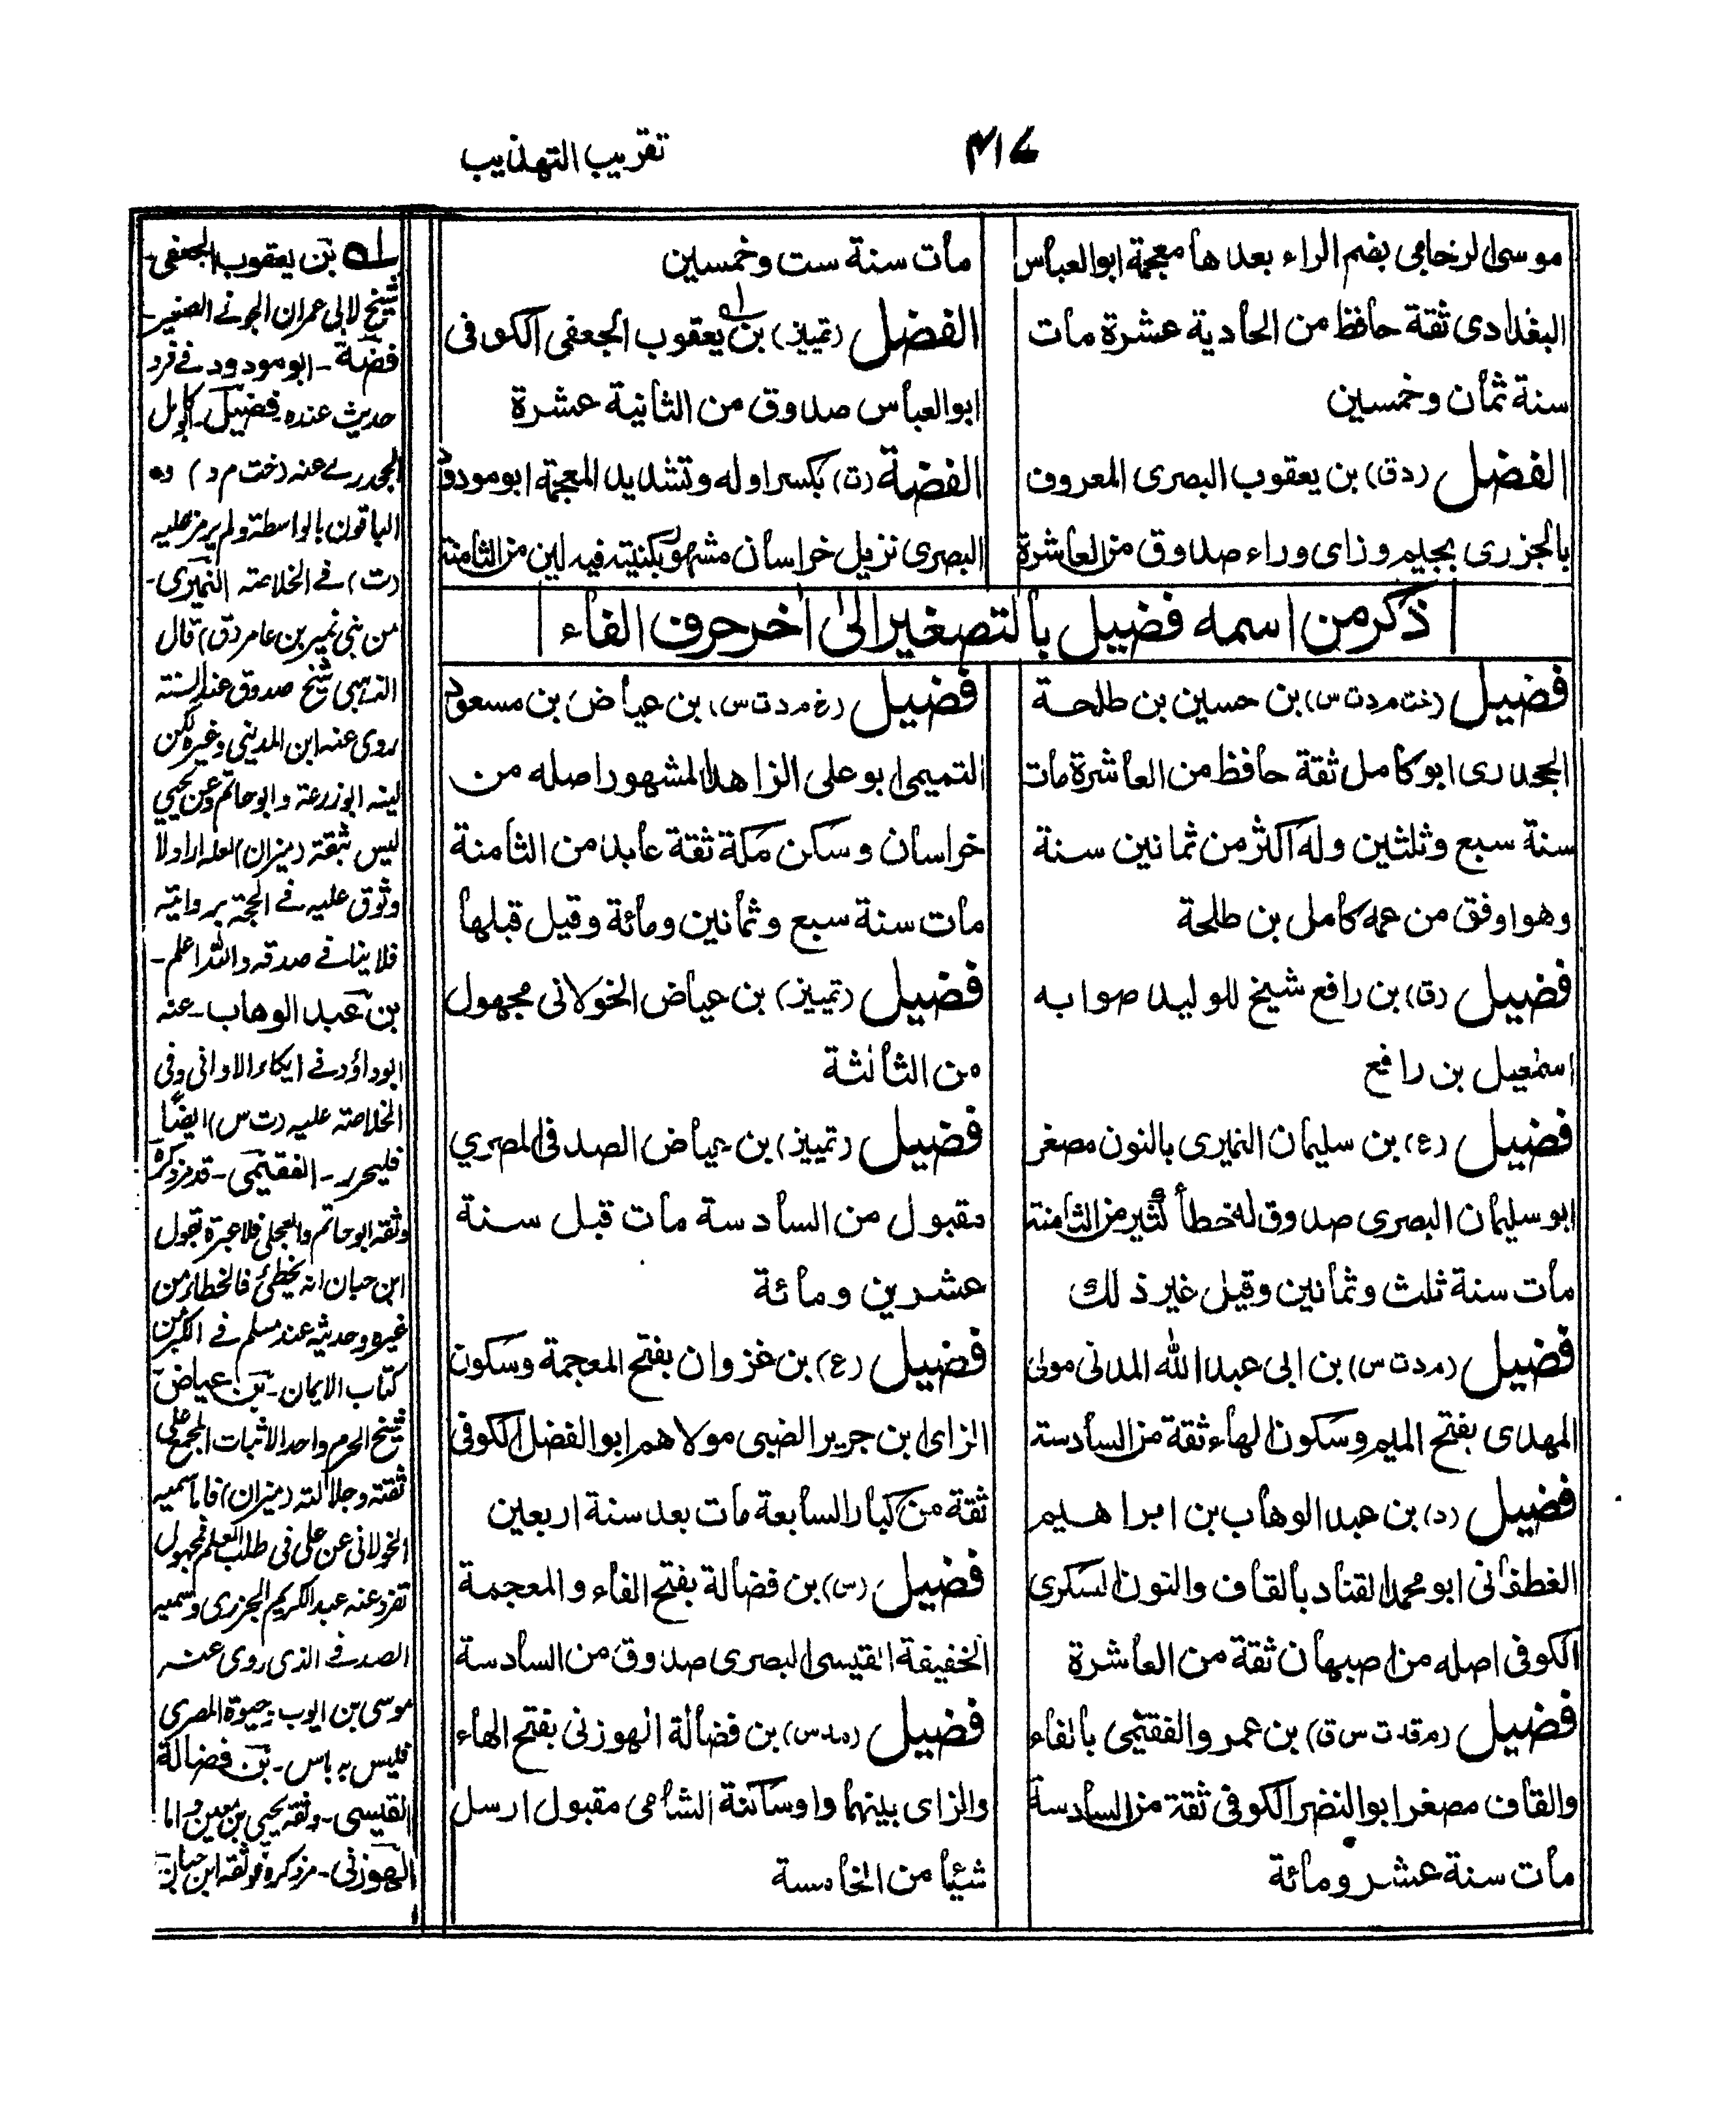 تقريب التهذيب
موسى الرخامى بضم الراء بعدها معجمة ابوالعباس
البغدادى ثقة حافظ من الحادية عشرة مات
سنة ثمان وخمسين
الفضل (دق) بن يعقوب البصرى المعروف
بالجزرى بجيم وزاى وراء صدوق من العاشرة
مات سنة ست وخمسين
الفضل (تمييز) بن يعقوب الجعفى الكوفى
ابوالعباس صدوق من الثانية عشرة
الفضة (ت) بكسر اوله وتشديد المعجمة ابومودود
البصرى نزيل خراسان مشهور بكنيته فيه لين من الثامنة
ذكر من اسمه فضيل بالتصغير الى اخر حرف الفاء
فضيل (خت م د ت س) بن حسين بن طلحة
الجحدرى ابوكامل ثقة حافظ من العاشرة مات
سنة سبع وثلثين وله اكثر من ثمانين سنة
وهو اوفق من عمه كامل بن طلحة
فضيل (ق) بن رافع شيخ للوليد صوابه
اسمعيل بن رافع
فضيل (ع) بن سليمان النميرى بالنون مصغر
ابوسليمان البصرى صدوق له خطأ كثير من الثامنة
مات سنة ثلث وثمانين وقيل غير ذلك
فضيل (م د ت س) بن ابى عبد الله المدنى مولى
المهدى بفتح الميم وسكون الهاء ثقة من السادسة
فضيل (د) بن عبد الوهاب بن ابراهيم
الغطفانى ابومحمد القناد بالقاف والنون السكرى
الكوفى اصله من اصبهان ثقة من العاشرة
فضيل (م قد ت س ق) بن عمرو الفقيمى بالفاء
والقاف مصغر ابوالنضر الكوفى ثقة من السادسة
مات سنة عشر ومائة
فضيل (خ م د ت س) بن عياض بن مسعود
التميمى ابوعلى الزاهد المشهور اصله من
خراسان وسكن مكة ثقة عابد من الثامنة
مات سنة سبع وثمانين ومائة وقيل قبلها
فضيل (تمييز) بن عياض الخولانى مجهول
من الثالثة
فضيل (تمييز) بن عياض الصدفى المصري
مقبول من السادسة مات قبل سنة
عشرين ومائة
فضيل (ع) بن غزوان بفتح المعجمة وسكون
الزاى ابن جرير الضبى مولاهم ابوالفضل الكوفى
ثقة من كبار السابعة مات بعد سنة اربعين
فضيل (س) بن فضالة بفتح الفاء والمعجمة
الخفيفة القيسى البصرى صدوق من السادسة
فضيل (مد س) بن فضالة الهوزنى بفتح الهاء
والزاى بينهما واو ساكنة الشامى مقبول ارسل
شيئا من الخامسة
له بن يعقوب الجعفى -
شيخ لابى عمران الجونے الصغير -
فضة - ابومودود فے فرد
حديث عنده فضيل - ابوكامل
الجحدرے عنه (خت م د)
الباقون بالواسطة ولم يرمز عليه
(ت) فے الخلاصة النميرى -
من بنى نمير بن عامر (دق) قال
الذہبى شيخ صدوق عند الستة
روى عنه ابن المدينى وغيره لكن
لينه ابوزرعة وابوحاتم وعن يحيى
ليس بثقة (ميزان) لعله اراد لا
وثوق عليه فے الحجة بروايته
فلا ينافے صدقه والله اعلم -
بن عبد الوهاب - عنه
ابوداؤد فے ايكاء الاوانى وفى
الخلاصة عليه (ت س) ايضًا
فليحرر - الفقيمى - قد مر ذكره
وثقه ابوحاتم والعجلى فلا عبرة بقول
ابن حبان انه يخطئ فالخطاء من
غيره وحديثه عند مسلم فے الكبر من
كتاب الايمان - بن عياض
شيخ الحرم واحد الاثبات المجمع على
ثقته وجلالته (ميزان) فاما سميه
الخولانى عن على فى طلب العلم فمجهول
تفرد عنه عبد الكريم الجزرى وسميه
الصدفے الذى روى عنه
موسى بن ايوب وحيوة المصرى
فليس به باس - بن فضالة
القيسى - وثقه يحيى بن معين واما
الهوزنى - مر ذكره فوثقه ابن حبان